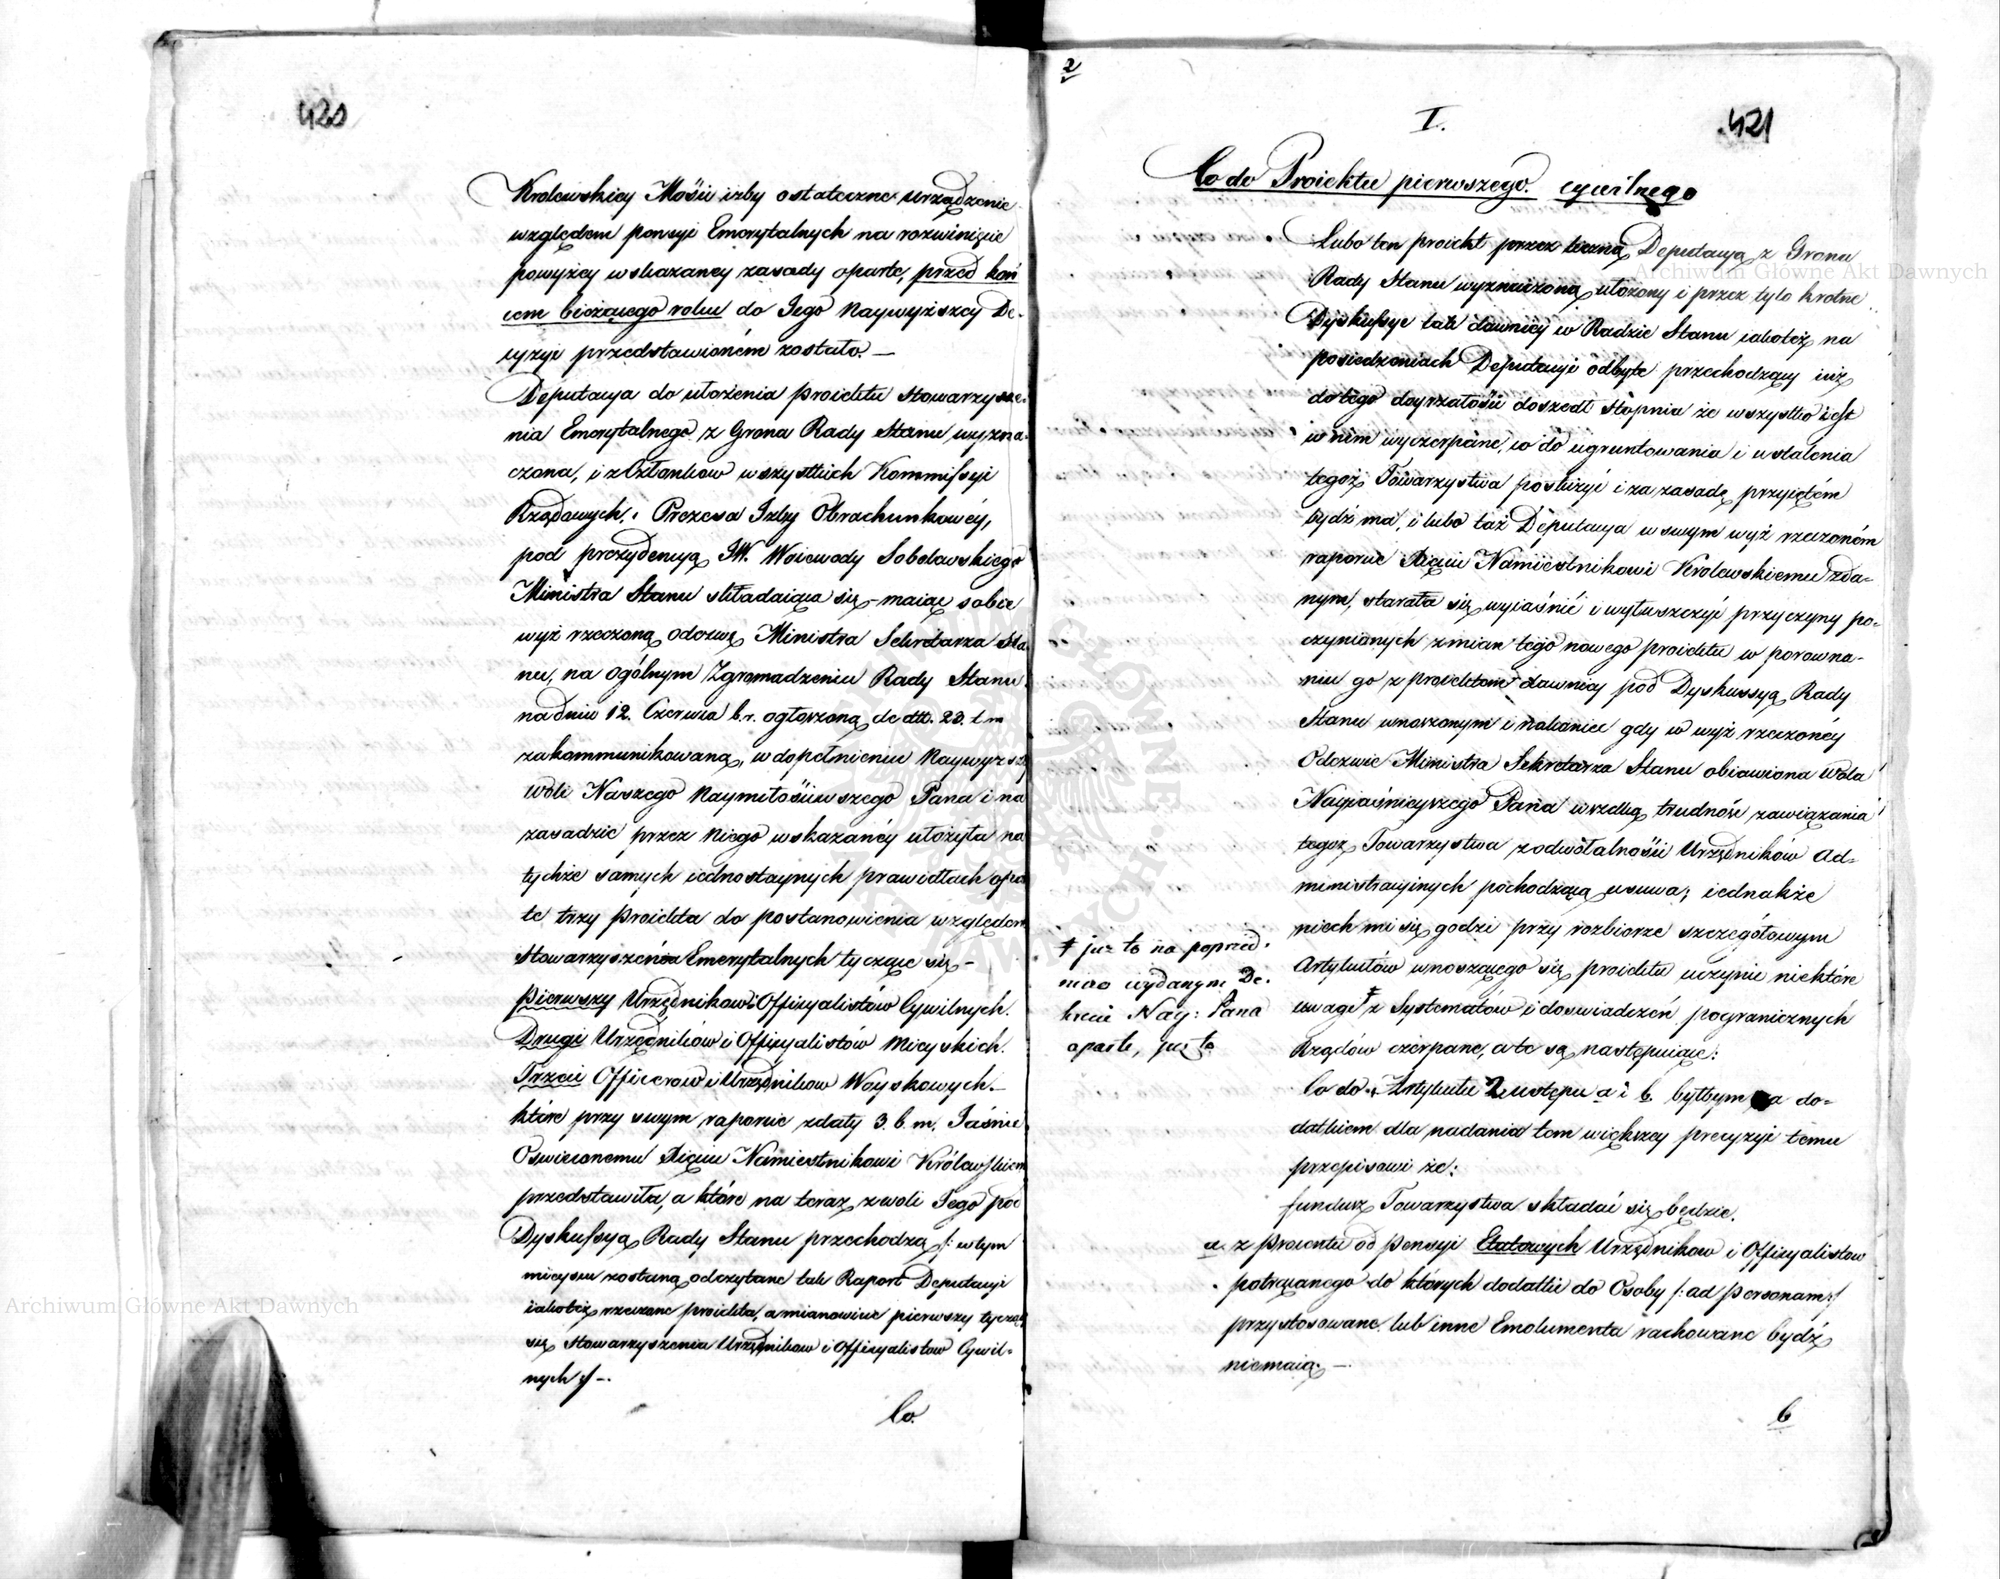 420
Krolewskiey Mości izby ostateczne urządzenie
względem pensyi Emerytalnych na rozwinięcie
powyżey wskazaney zasady oparte, przed koń
cem bieżącego roku do Jego Naywyższey De-
cyzyi przedstawioném zostało. —
Deputacya do ułożenia proiektu Stowarzysze-
nia Emerytalnego z Grona Rady Stanu wyzna-
czona, i z Członkow wszystkich Kommissyi
Rządowych, i Prezesa Izby Obrachunkowéy,
pod prezydencyą JW. Woiewody Sobolewskiego
Ministra Stanu składaiąca się – maiąc sobie
wyż rzeczoną odezwę Ministra Sekretarza Sta
nu, na ogólnym Zgromadzeniu Rady Stanu
na dniu 12. Czerwca b.r. ogłoszoną de dtt. 23. t m
zakommunikowaną, w dopełnieniu Naywyższey
woli Naszego Naymiłościwszego Pana i na
zasadzie przez Niego wskazanéy ułożyła na
tychże samych iednostaynych prawidłach opar
te trzy proiekta do postanowienia względem
Stowarzyszeń Emerytalnych tyczące się –
Pierwszy Urzędników i Officyalistów Cywilnych.
Drugi Urzędników i Officyalistów Mieyskich.
Trzeci Officerow i Urzędnikow Woyskowych. —
które przy swym raporcie zdały 3. b. m. Jaśnie
Oswieconemu Xięciu Namiestnikowi Królewskiem
przedstawiła, a które na teraz z woli Jego pod
Dyskussyą Rady Stanu przechodzą /: w tym
mieyscu zostaną odczytane tak Raport Deputacyi
iakoteż rzeczone proiekta, a mianowicie pierwszy tyczący
się Stowarzyszenia Urzędnikow i Officyalistow Cywil-
nych :/ —.
Co.
2
421
I.
Co do Proiektu pierwszego. cywilnego
Lubo ten proiekt przez liczną Deputacyą z Grona
Rady Stanu wyznaczoną ułożony i przez tylo krotne
Dyskussye tak dawniey w Radzie Stanu iakoteż na
posiedzeniach Deputacyi odbyte przechodzący iuż
do tego doyrzałości doszedł stopnia że wszystko iest
w nim wyczerpane, co do ugruntowania i ustalenia
tegoż Towarzystwa posłużyć i za zasadę przyiętém
bydź ma, i lubo taż Deputacya w swym wyż rzeczoném
raporcie Xięciu Namiestnikowi Krolewskiemu zda-
nym, starała się wyiaśnić i wytuszczyć przyczyny po-
czynionych zmian tego nowego proiektu w porowna-
niu go z proiektem dawniey pod Dyskussyą Rady
Stanu wnoszonym i nakoniec gdy w wyż rzeczonéy
Odezwie Ministra Sekretarza Stanu obiawiona Wola
Nayiaśnieyszego Pana wszelką trudność zawiązania
tegoż Towarzystwa z odwołalności Urzędników Ad-
ministracyinych pochodzącą usuwa; iednakże
niech mi się godzi przy rozbiorze szczegółowym
Artykułów wnoszącego się proiektu uczynić niektóre
uwagi ‡ z Systematow i doświadczeń pogranicznych
Rządów czerpane, a te są następuiące:
‡ już to na poprzed-
niczo wydanym De-
krecie Nay: Pana
oparte, już to
Co do Artykułu 2 ustępu a i b byłbym za do-
datkiem dla nadania tem większey precyzyi temu
przepisowi że:
fundusz Towarzystwa składać się będzie.
a. z procentu od pensyi Etatowych Urzędnikow i Officyalistow
potrącanego do których dodatki do Osoby /: ad personam :/
przystosowane lub inne Emolumenta rachowane bydź
niemaią. —
b
Archiwum Główne Akt Dawnych
Archiwum Główne Akt Dawnych